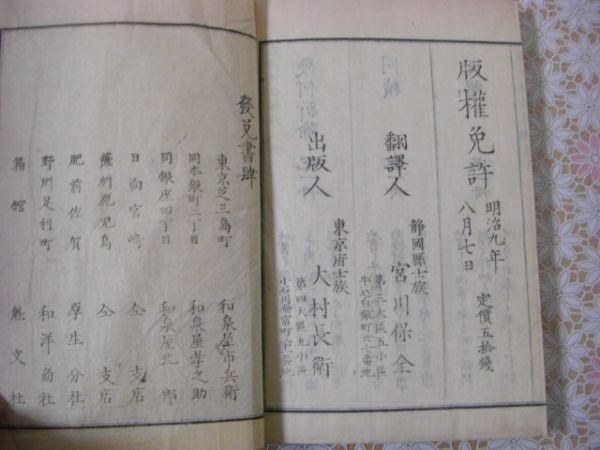 版權免許
明治九年
八月七日
定價五拾錢
翻譯人
静岡縣士族
宮川保全
第三大區五小區
牛込白銀町廿七番地
出版人
東京府士族
大村長衛
第四大區九小區
發兌書肆
東京芝三島町 和泉屋市兵衛
同本銀町二丁目 和泉屋孝之助
同銀座四丁目 和泉屋北 郎
日向宮崎 仝 支店
薩州鹿児島 仝 支店
肥前佐賀 厚生分社
野州足利町 和洋商社
箱館 魁文社